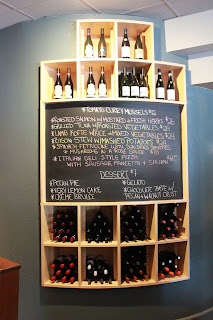 *TOMATO CURRY MUSSELS
*ROASTED SALMON W/ MUSTARD & FRESH HERBS $26
*GRILLED TUNA W/ ROASTED VEGETABLES $28
*LAMB KOFTE W/ RICE & MIXED VEGETABLES $24
*BISON STEW W/ MASHED POTATOES $28
*SPINACH FETTUCCINE WITH SUNDRIED TOMATOES
& MUSHROOMS IN A ROSE SAUCE
*ITALIAN DELI STYLE PIZZA
WITH SAUSAGE, PANCETTA & SALAMI
DESSERT $7
*PECAN PIE
*GELATO
*KEY LEMON CAKE
*CHOCOLATE TARTE W/
*CREME BRULEE
PECAN & WALNUT CRUST